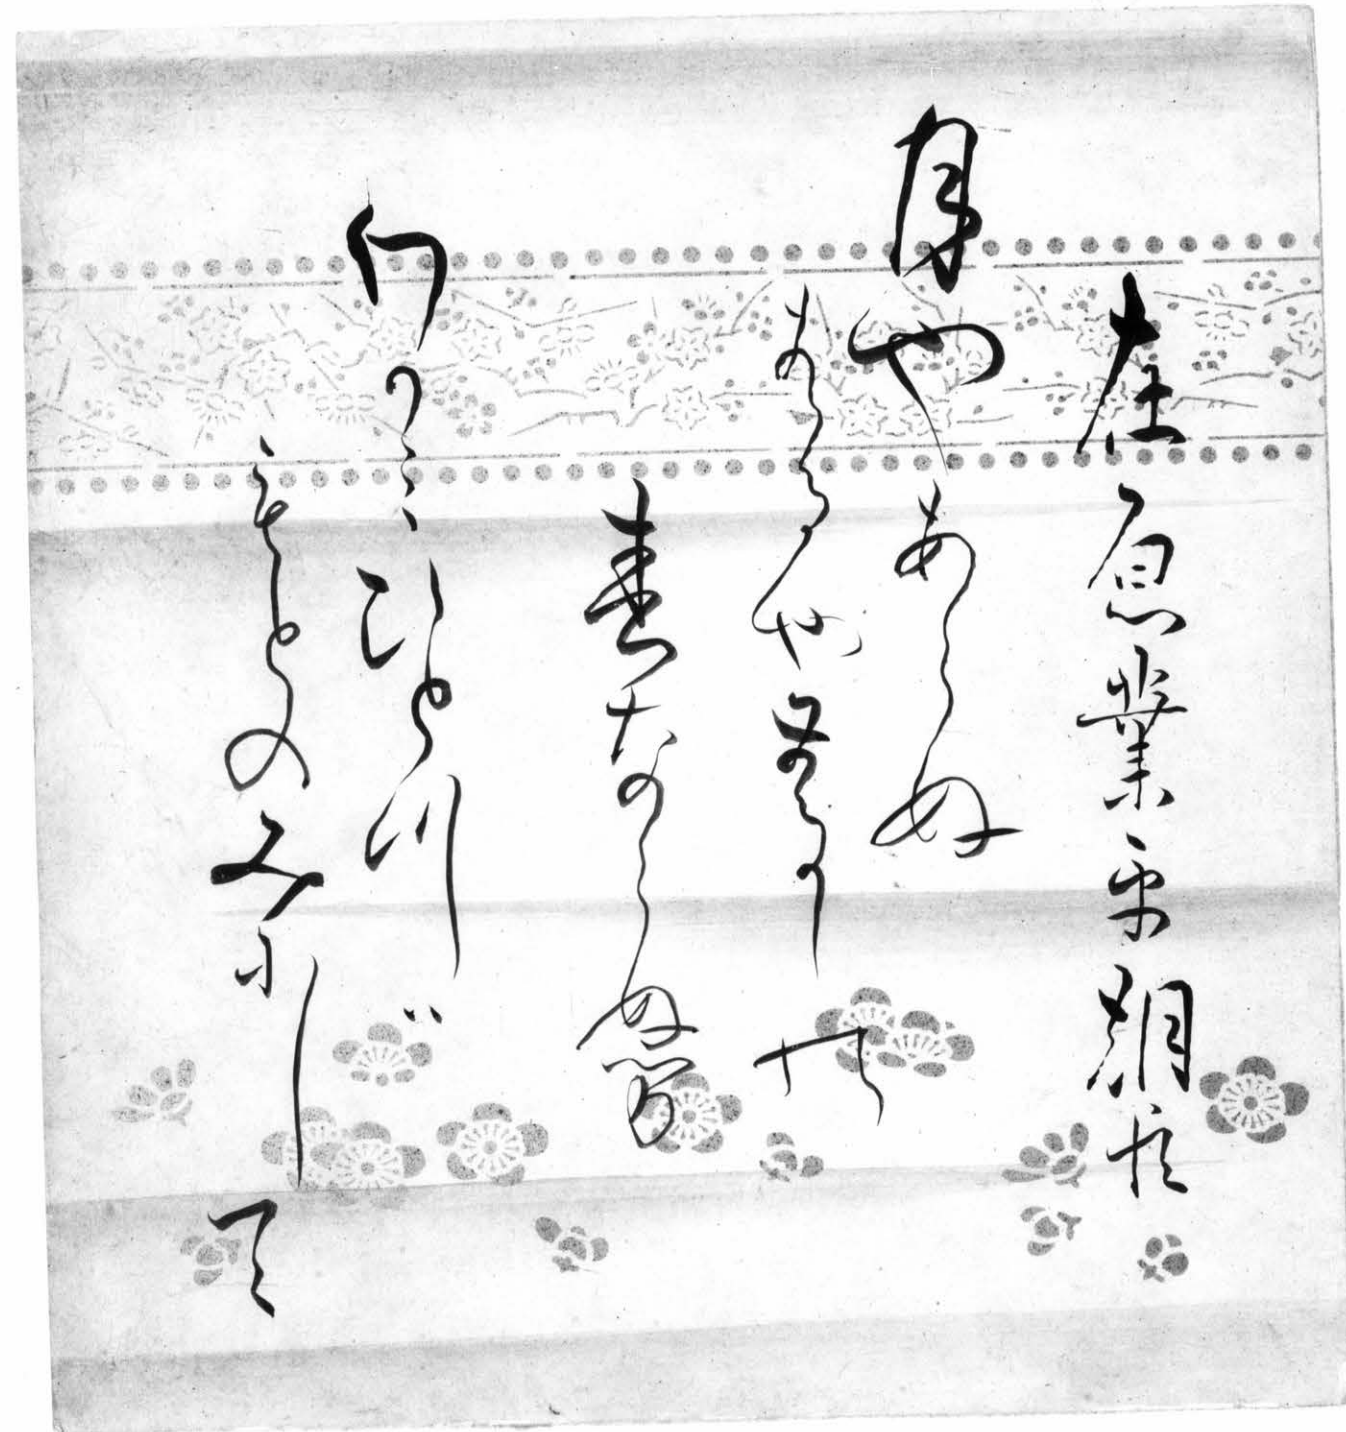 在原業平朝臣
月やあらぬ
はるやむかしの
春ならぬ
わかミひとつハ
もとのみにして